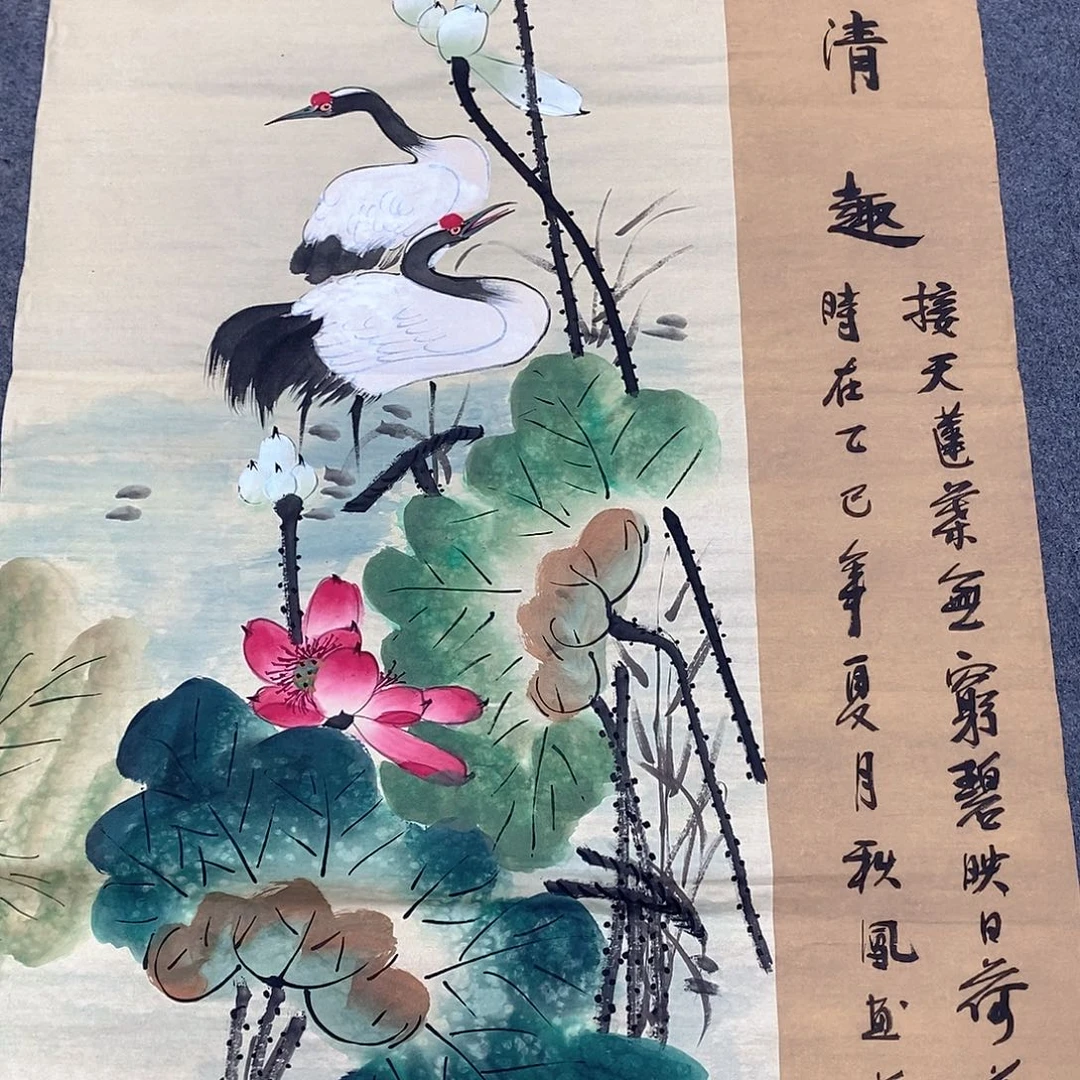 清趣
接天蓮葉無窮碧映日荷
時在乙巳年夏月秋風画